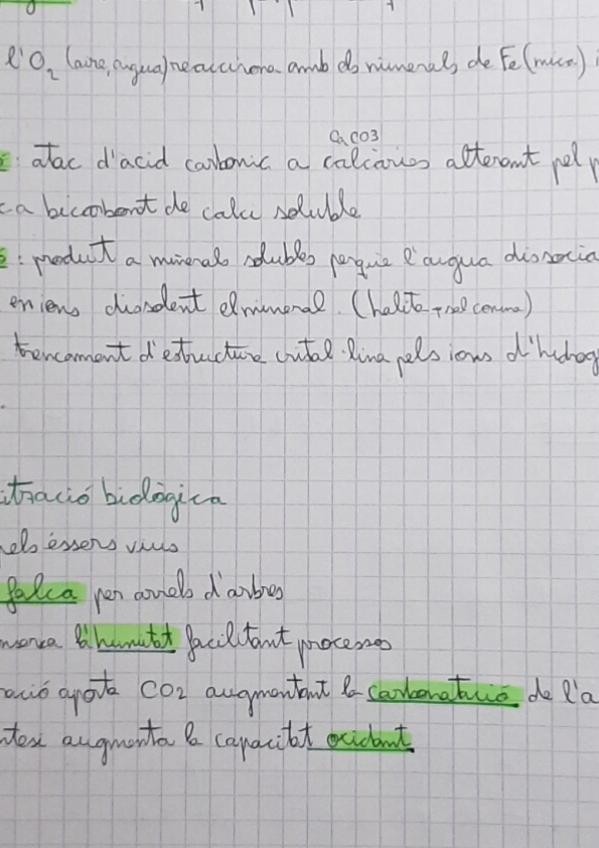 l'O2 (aire, aigua) reacciona amb ds minerals de Fe (mica) i
CaCO3
: atac d'acid carbonic a calcàries alterant pel p
ca bicarbonat de calci soluble
: produït a minerals solubles perquè l'aigua dissocia
en ions dissolent el mineral. (halita → sal comuna)
trencament d'estructura cristal·lina pels ions d'hidrog
ització biològica
pels éssers vius
falca per arrels d'arbres
nserva la humitat facilitant processos
ració aporta CO2 augmentant la carbonatació de l'a
ntesi augmenta la capacitat oxidant